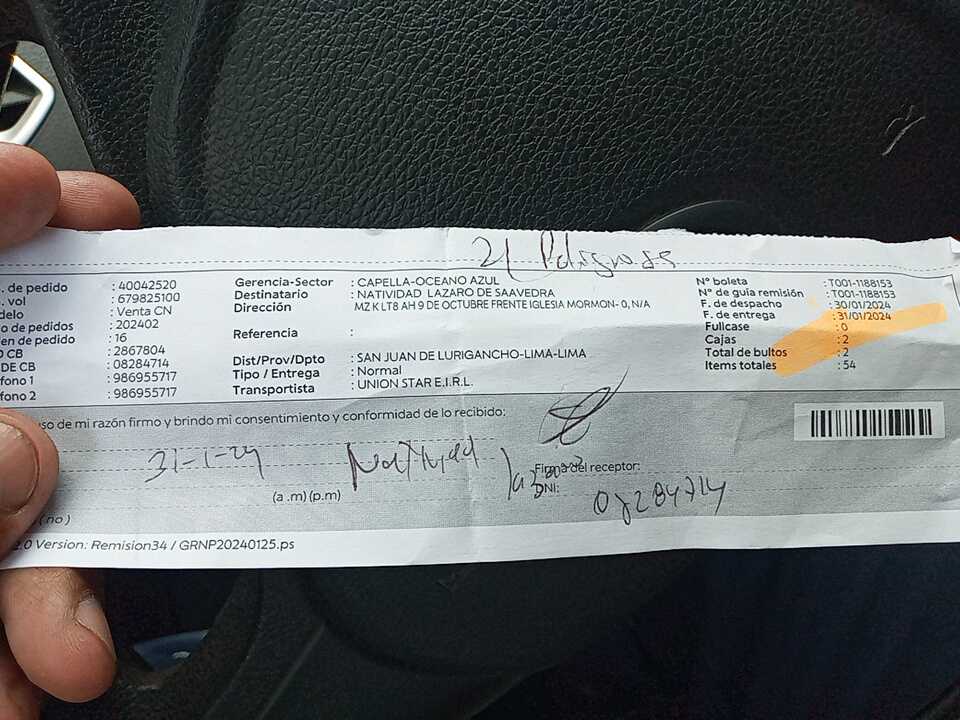 . de pedido : 40042520
. vol : 679825100
delo : Venta CN
o de pedidos : 202402
en de pedido : 16
O CB : 2867804
DE CB : 08284714
fono 1 : 986955717
fono 2 : 986955717
Gerencia-Sector : CAPELLA-OCEANO AZUL
Destinatario : NATIVIDAD LAZARO DE SAAVEDRA
Dirección MZ K LT8 AH 9 DE OCTUBRE FRENTE IGLESIA MORMON- 0, N/A
Referencia :
Dist/Prov/Dpto : SAN JUAN DE LURIGANCHO-LIMA-LIMA
Tipo / Entrega : Normal
Transportista : UNION STAR E.I.R.L.
Nº boleta : T001-1188153
Nº de guía remisión : T001-1188153
F. de despacho : 30/01/2024
F. de entrega : 31/01/2024
Fullcase : 0
Cajas : 2
Total de bultos : 2
Items totales : 54
uso de mi razón firmo y brindo mi consentimiento y conformidad de lo recibido:
31-1-24
(a .m) (p.m)
Firma del receptor:
DNI: 08284714
( no )
2.0 Version: Remision34 / GRNP20240125.ps